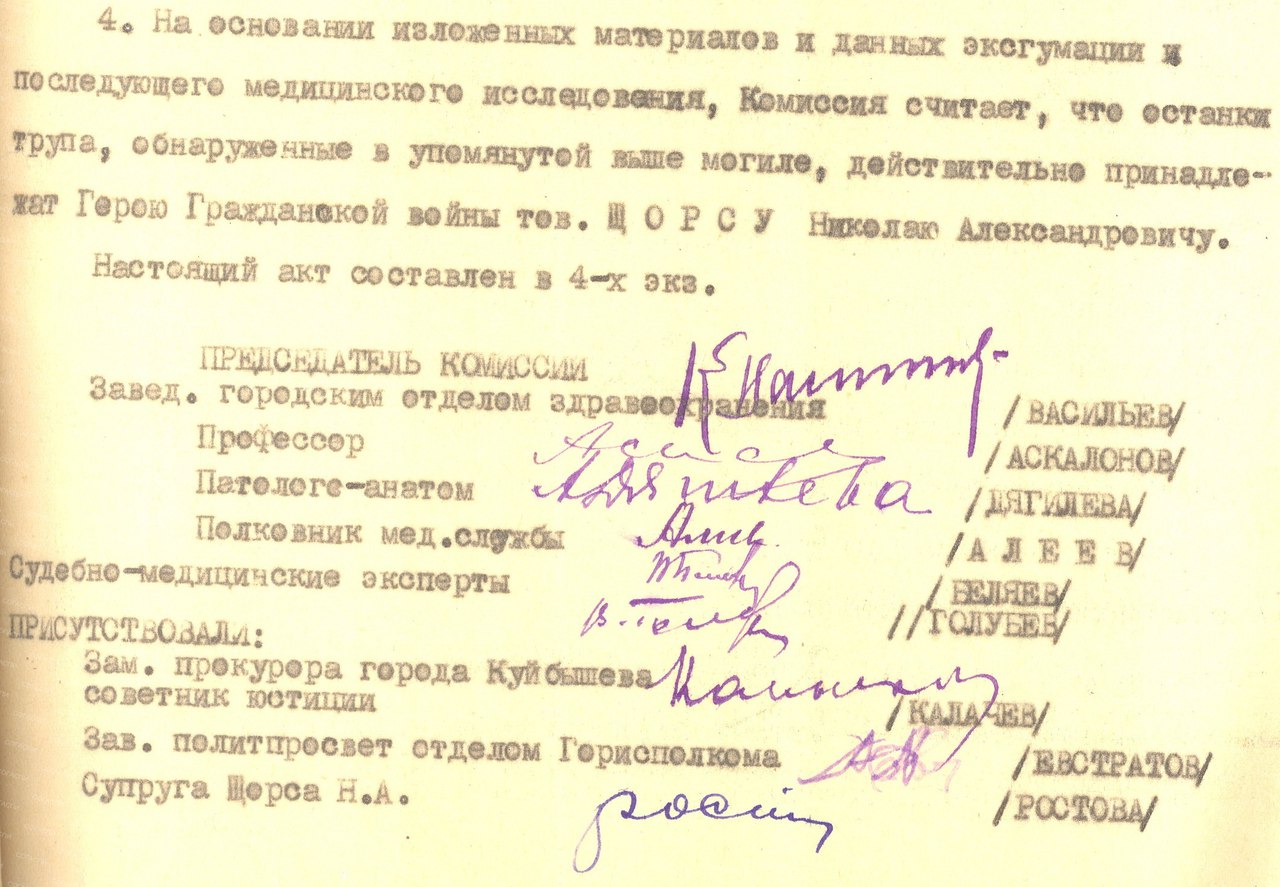 4. На основании изложенных материалов и данных эксгумации и
последующего медицинского исследования, Комиссия считает, что останки
трупа, обнаруженные в упомянутой выше могиле, действительно принадле-
жат Герою Гражданской войны тов. Щ О Р С У Николаю Александровичу.
Настоящий акт составлен в 4-х экз.
ПРЕДСЕДАТЕЛЬ КОМИССИИ
Завед. городским отделом здравоохранения /ВАСИЛЬЕВ/
Профессор /АСКАЛОНОВ/
Патолого-анатом /ДЯГИЛЕВА/
Полковник мед.службы /А Л Е Е В/
Судебно-медицинские эксперты /БЕЛЯЕВ/
//ГОЛУБЕВ/
ПРИСУТСТВОВАЛИ:
Зам. прокурора города Куйбышева
советник юстиции /КАЛАЧЕВ/
Зав. политпросвет отделом Горисполкома /ЕВСТРАТОВ/
Супруга Щорса Н.А. /РОСТОВА/